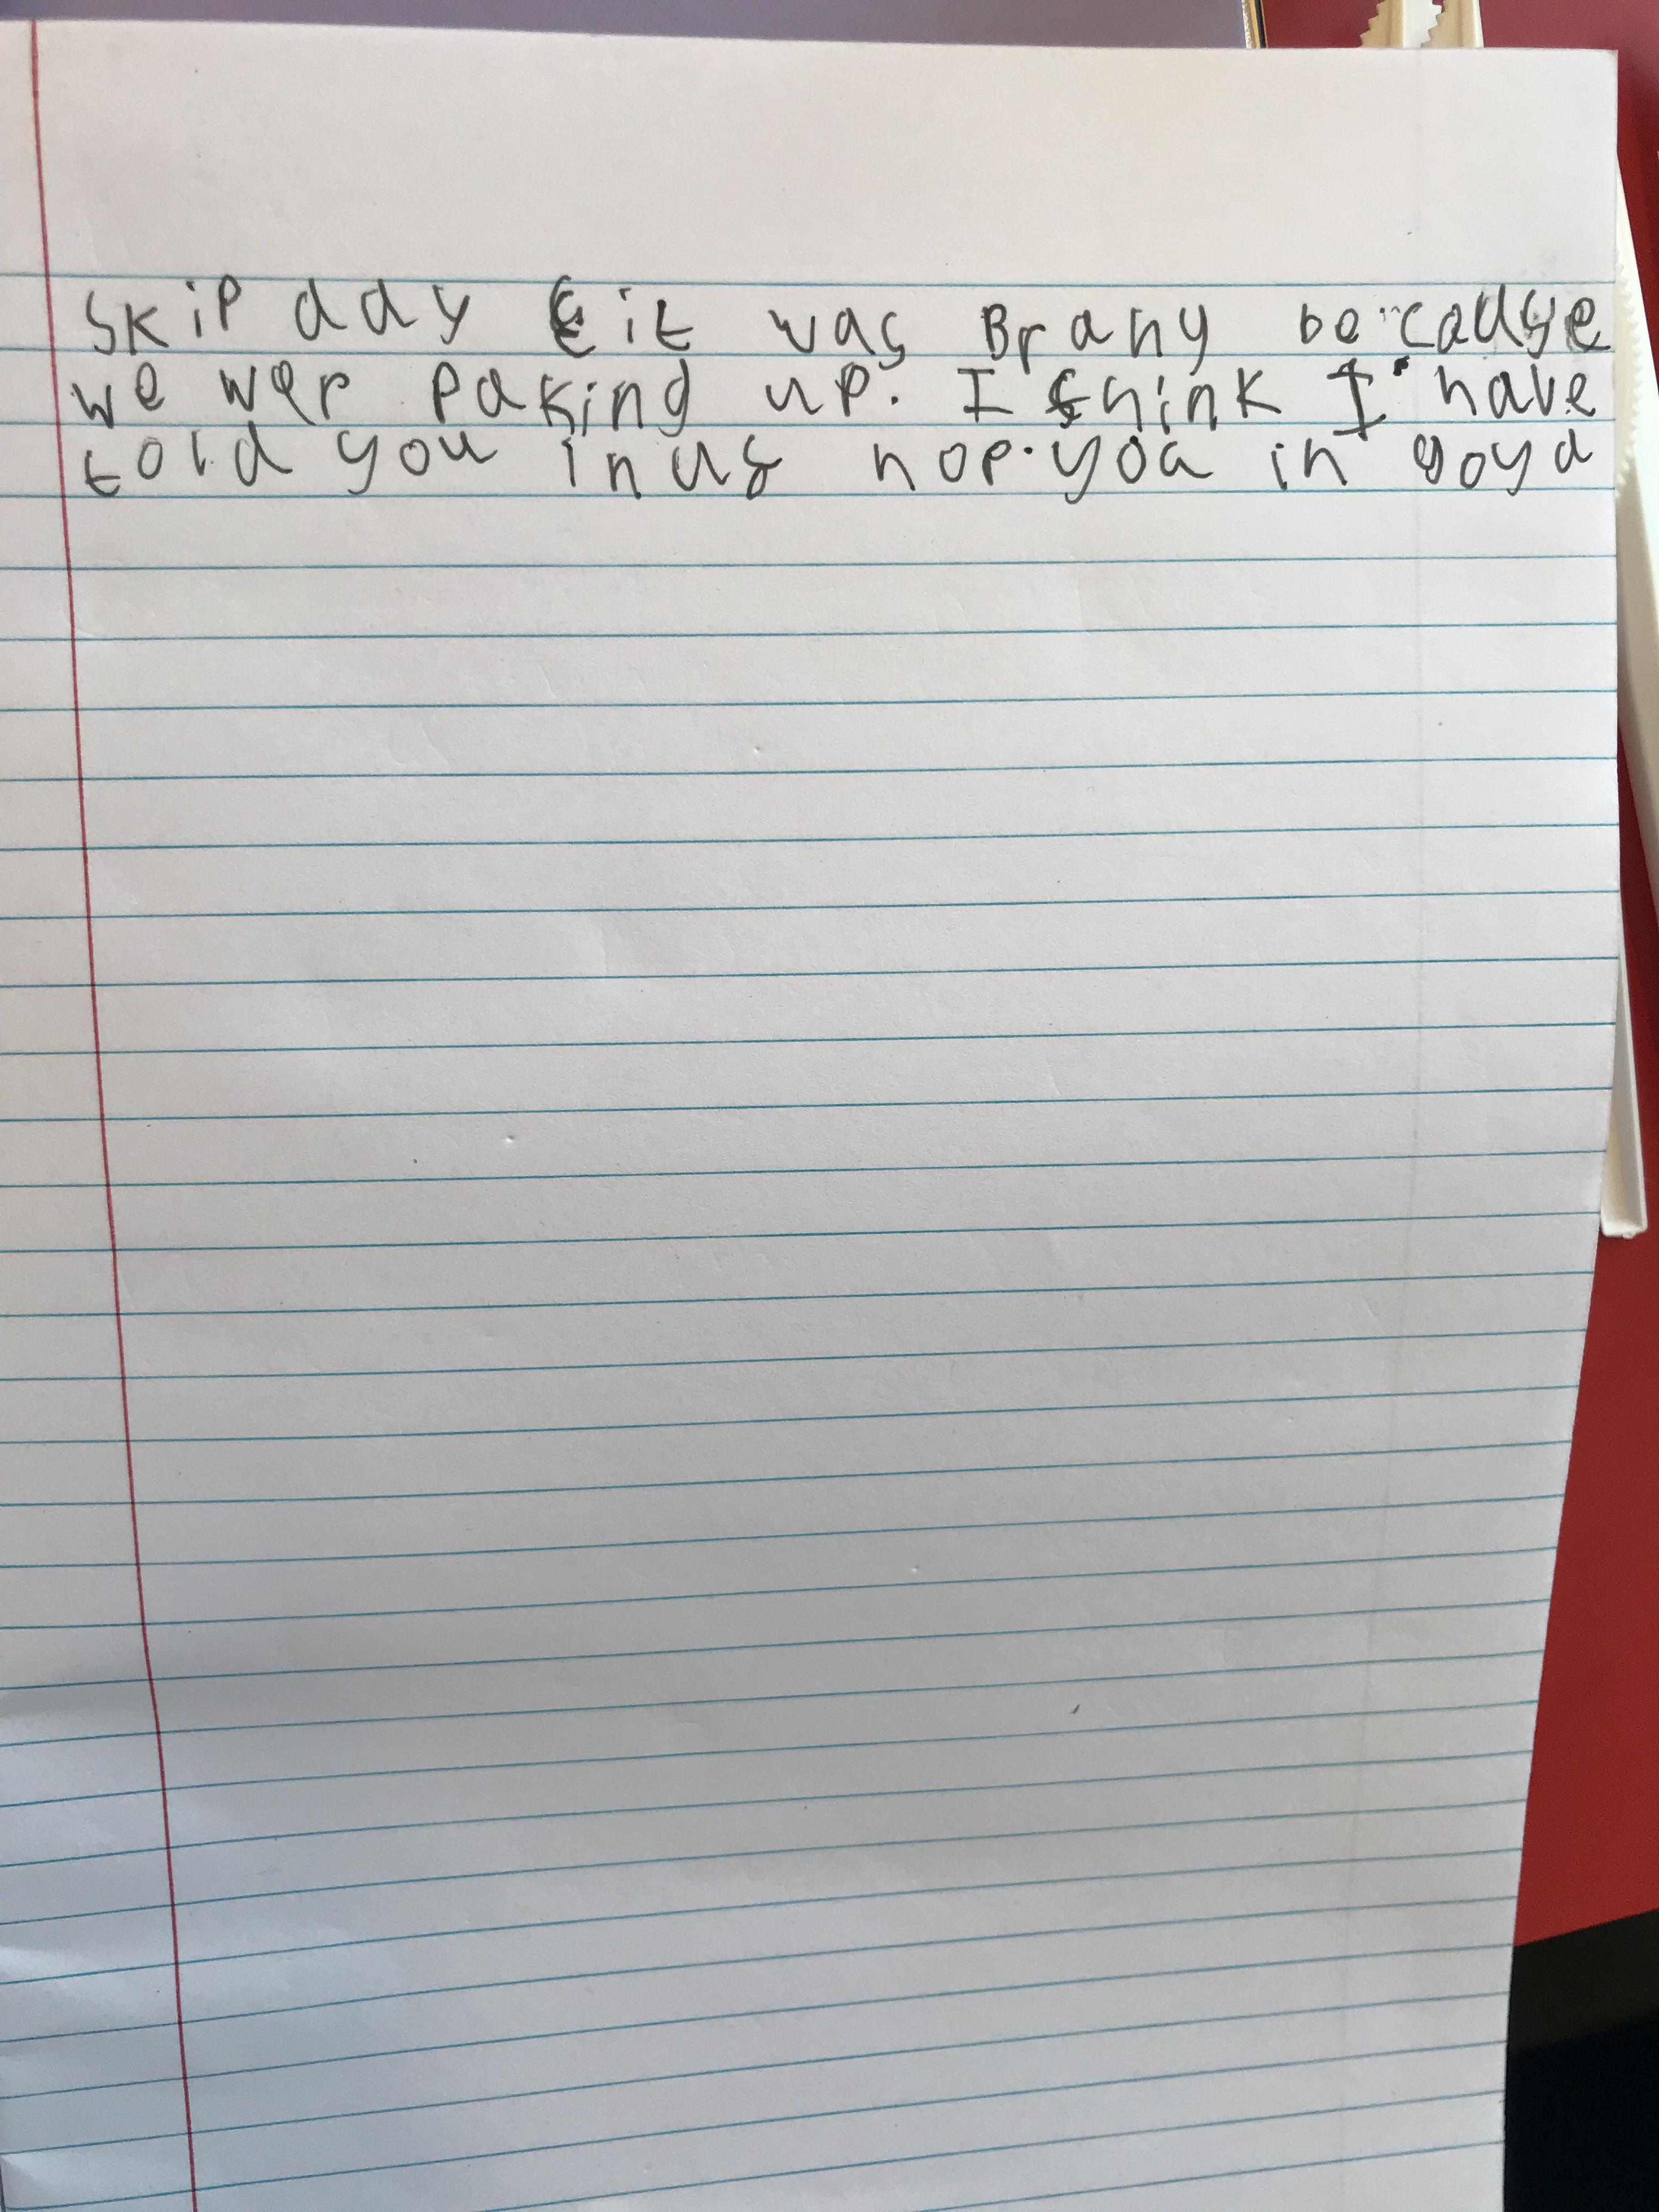 skip day it was Brany because
we wer paking up. I think I have
told you inuf hop you in goyd